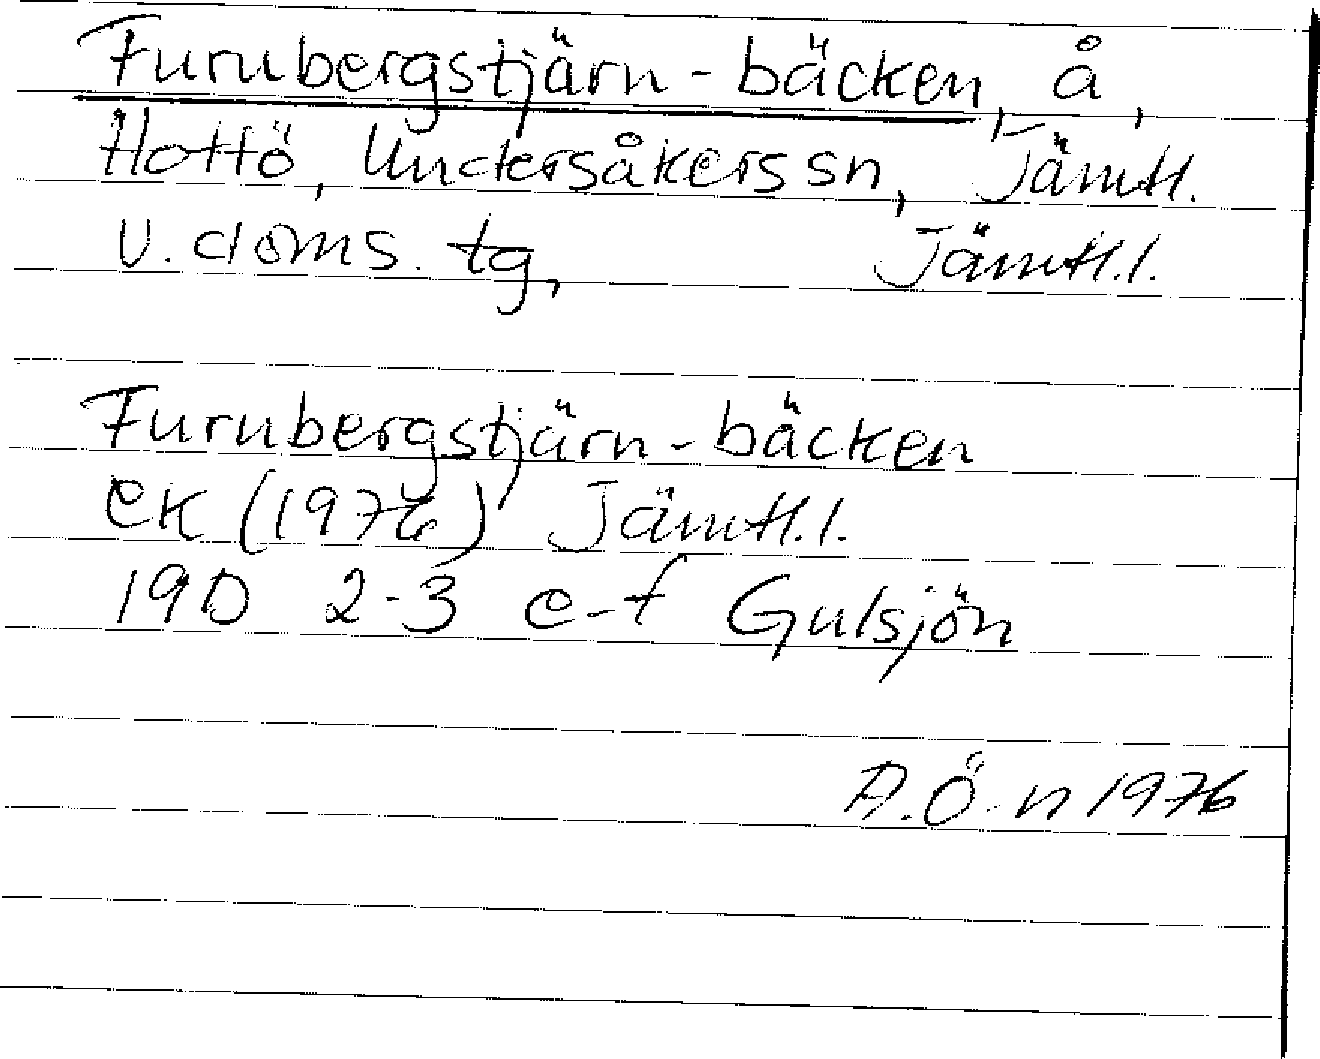 Furubergstjärn-bäcken, å,
Hottö, Undersåkers sn, Jämtl.
V. doms. tg, Jämtl.l.
Furubergstjärn-bäcken
ek (1976) Jämtl.l.
19D 2-3 e-f Gulsjön
A.Ö-n 1976